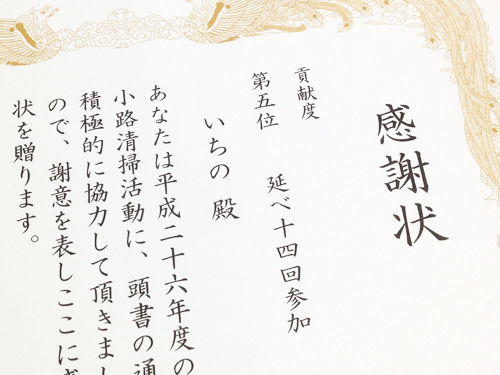 感謝状
貢献度
第五位 延べ十四回参加
いちの 殿
あなたは平成二十六年度の
小路清掃活動に、頭書の通
積極的に協力して頂きまし
ので、謝意を表しここに
状を贈ります。